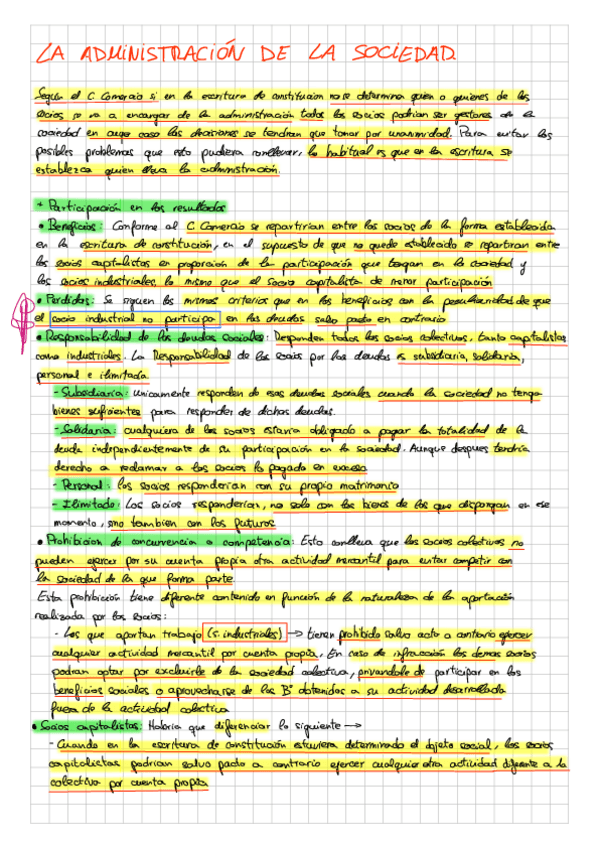 LA ADMINISTRACIÓN DE LA SOCIEDAD
Según el C Comercio si en la escritura de constitución no se determina quien o quienes de los
socios se va a encargar de la administración todos los socios podrian ser gestores de la
sociedad en cuyo caso las decisiones se tendran que tomar por unanimidad. Para evitar los
posibles problemas que esto pudiera conllevar, lo habitual es que en la escritura se
establezca quien lleva la administración.
* Participación en los resultados
• Beneficios: Conforme al C Comercio se repartirian entre los socios de la forma establecida
en la escritura de constitución, en el supuesto de que no quede establecido se repartiran entre
los socios capitalistas en proporción de la participación que tengan en la sociedad y
los socios industriales lo mismo que el socio capitalista de menor participación
• Perdidas: Se siguen los mismos criterios que en los beneficios con la peculiaridad de que
el socio industrial no participa en las deudas salvo pacto en contrario
• Responsabilidad de las deudas sociales: Responden todos los socios colectivos, tanto capitalistas
como industriales. La Responsabilidad de los socios por las deudas es subsidiaria, solidaria,
personal e ilimitada
- Subsidiaria: unicamente responden de esas deudas sociales cuando la sociedad no tenga
bienes suficientes para responder de dichas deudas.
- Solidaria: cualquiera de los socios estaria obligado a pagar la totalidad de la
deuda independientemente de su participación en la sociedad. Aunque despues tendria
derecho a reclamar a los socios lo pagado en exceso
- Personal: los socios responderian con su propio matrimonio
- Ilimitado: Los socios responderian, no solo con los bienes de los que dispongan en ese
momento, sino tambien con los futuros
• Prohibicion de concurrencia o competencia: Esto conlleva que los socios colectivos no
pueden ejercer por su cuenta propia otra actividad mercantil para evitar competir con
la sociedad de la que forma parte
Esta prohibición tiene diferente contenido en función de la naturaleza de la aportación
realizada por los socios:
- Los que aportan trabajo (s. industriales) → tienen prohibido salvo acto a contrario ejercer
cualquier actividad mercantil por cuenta propia, En caso de infracción los demas socios
podran optar por excluirle de la sociedad colectiva, privandole de participar en los
beneficios sociales o aprovecharse de los Bº obtenidos a su actividad desarrollada
fuera de la actividad colectiva
• Socios capitalistas: Habria que diferenciar lo siguiente →
- Cuando en la escritura de constitución estuviera determinado el objeto social, los socios
capitalistas podrian salvo pacto a contrario ejercer cualquier otra actividad diferente a la
colectiva por cuenta propia